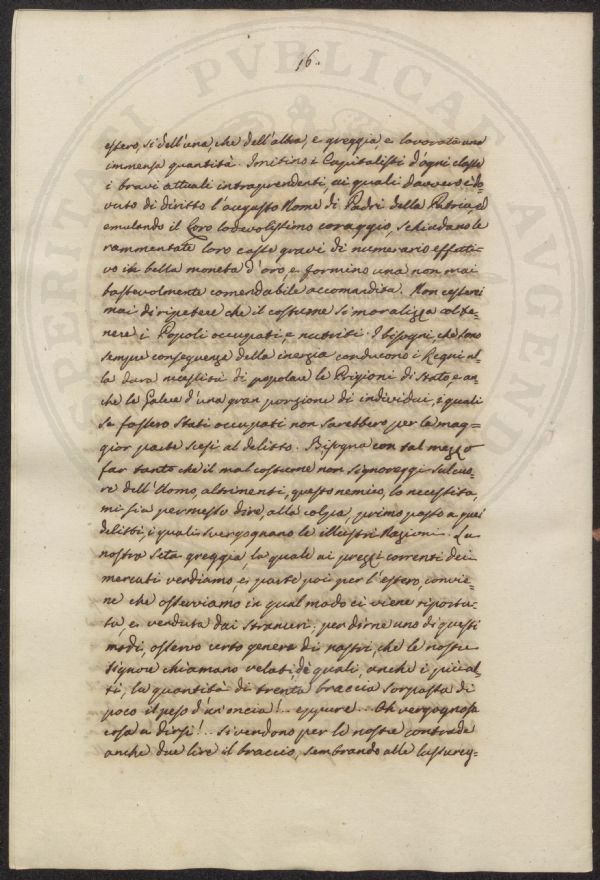 16.
estero, si dell'una, che dell'altra, e greggia e lavorata una
immensa quantità. Imitino i Capitalisti d'ogni classe
i bravi attuali intraprendenti, ai quali davvero è do-
vuto di diritto l'augusto Nome di Padri della Patria, ed
emulando il Loro lodevolissimo coraggio, schiudano le
rammentate loro casse gravi di numerario effetti-
vo in bella moneta d'oro, e formino una non mai
bastevolmente comendabile accomandita. Non cesserei
mai di ripetere che il costume si moralizza col te-
nere i Popoli occupati, e nutriti. I bisogni, che sono
sempre conseguenze della inerzia conducono i Regni al-
la dura necessità di popolare le Prigioni di Stato, e an-
che le Galere d'una gran porzione di individui, i quali
se fossero stati occupati non sarebbero per la mag-
gior parte scesi al delitto. Bisogna con tal mezzo
far tanto che il mal costume non signoreggi sul cuo-
re dell'Uomo, altrimenti, questo nemico, lo necessita,
mi sia permesso dire, alla colpa, primo passo a quei
delitti, i quali svergognano le illustri Nazioni. La
nostra Seta greggia, la quale ai prezzi correnti dei
mercati vendiamo, e parte poi per l'estero, convie-
ne che osserviamo in qual modo ci viene riporta-
ta, e venduta dai stranieri: per dirne uno di questi
modi, osservo certo genere di nastri, che le nostre
signore chiamano velati, de quali, anche i più al-
ti, la quantità di trenta braccia sorpassa di
poco il peso d'un oncia!.. eppure... Oh vergognosa
cosa a dirsi!.. si vendono per le nostre contrade
anche due lire il braccio, sembrando alle lussureg-